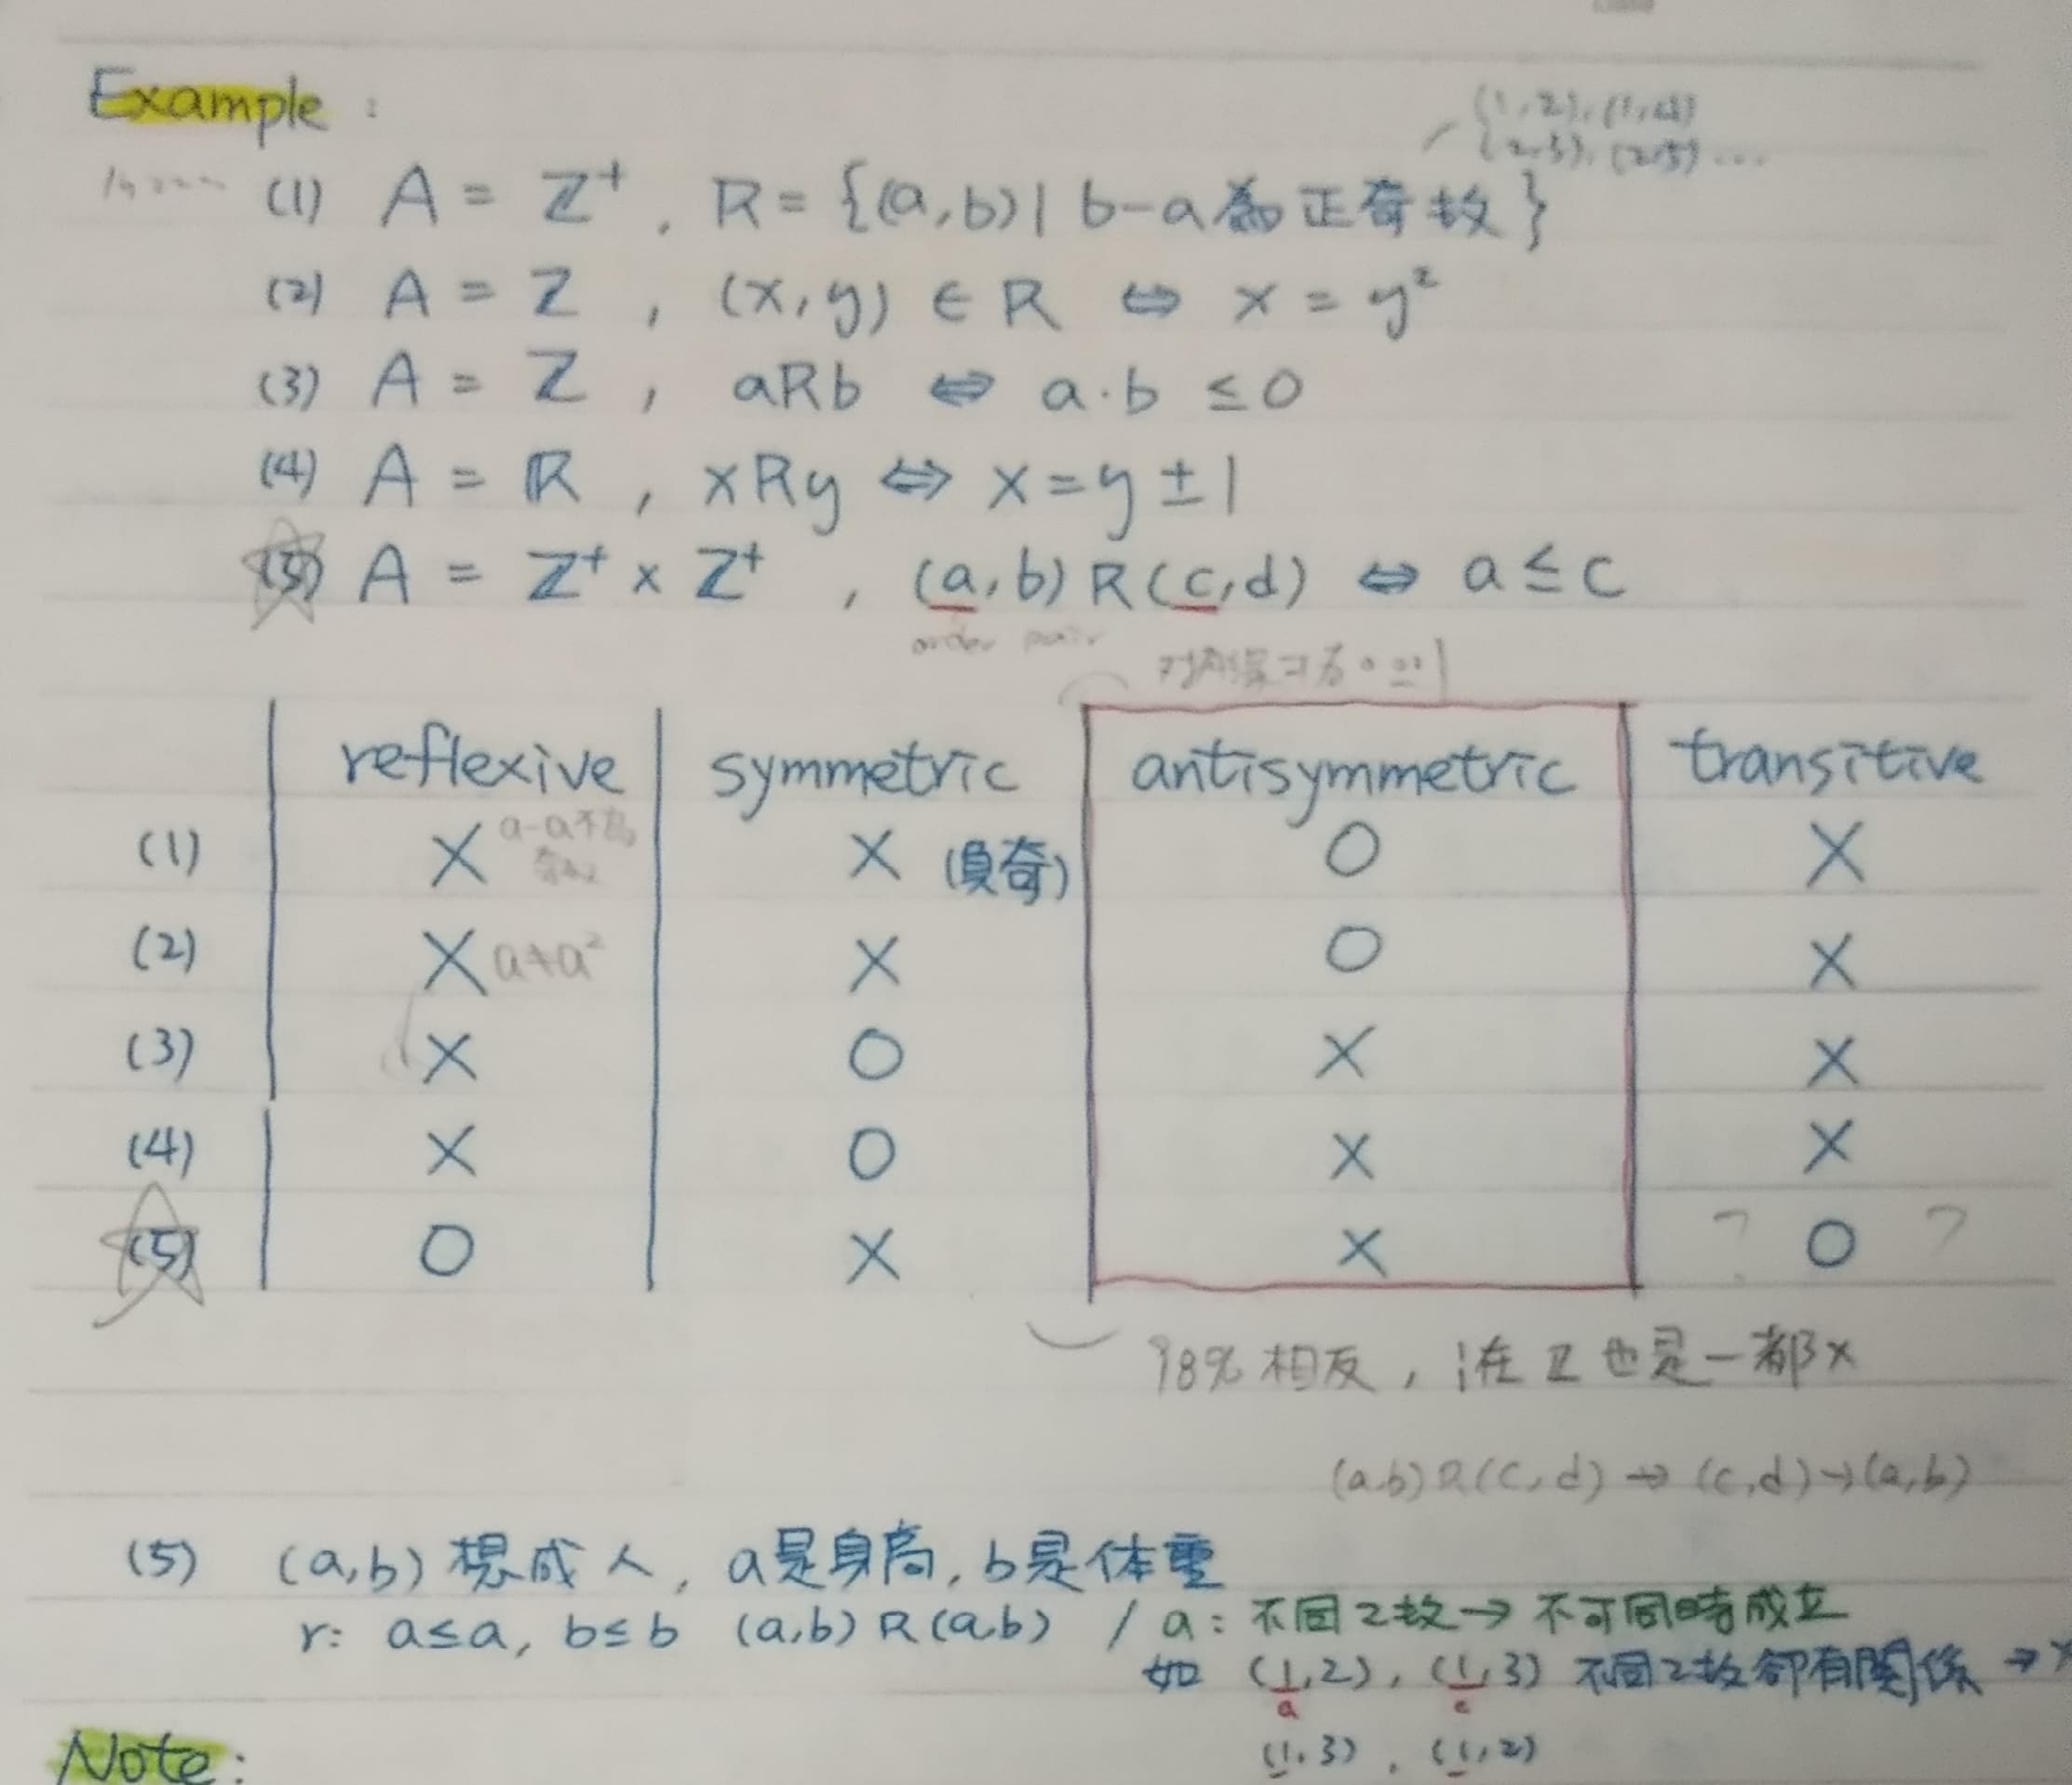 Example :
(1,2), (1,4)
(2,3), (2,5) ...
(1) A = Z⁺ , R = {(a,b) | b-a 為正奇数 }
(2) A = Z , (x,y) ∈ R ⇔ x = y²
(3) A = Z , aRb ⇔ a·b ≤ 0
(4) A = ℝ , xRy ⇔ x = y ± 1
(5) A = Z⁺ × Z⁺ , (a,b) R (c,d) ⇔ a ≤ c
order pair
reflexive symmetric antisymmetric transitive
(1) X a-a不為奇数 X (負奇) O X
(2) X a≠a² X O X
(3) X O X X
(4) X O X X
(5) O X X ? O ?
98% 相反, 也是一都X
(a,b) R (c,d) → (c,d) → (a,b)
(5) (a,b) 想成人, a是身高, b是体重
r: a≤a, b≤b (a,b) R (a,b) / a: 不同2数 → 不可同時成立
如 (1,2), (1,3) 不同2数卻有関係 → X
a c
(1,3), (1,2)
Note: